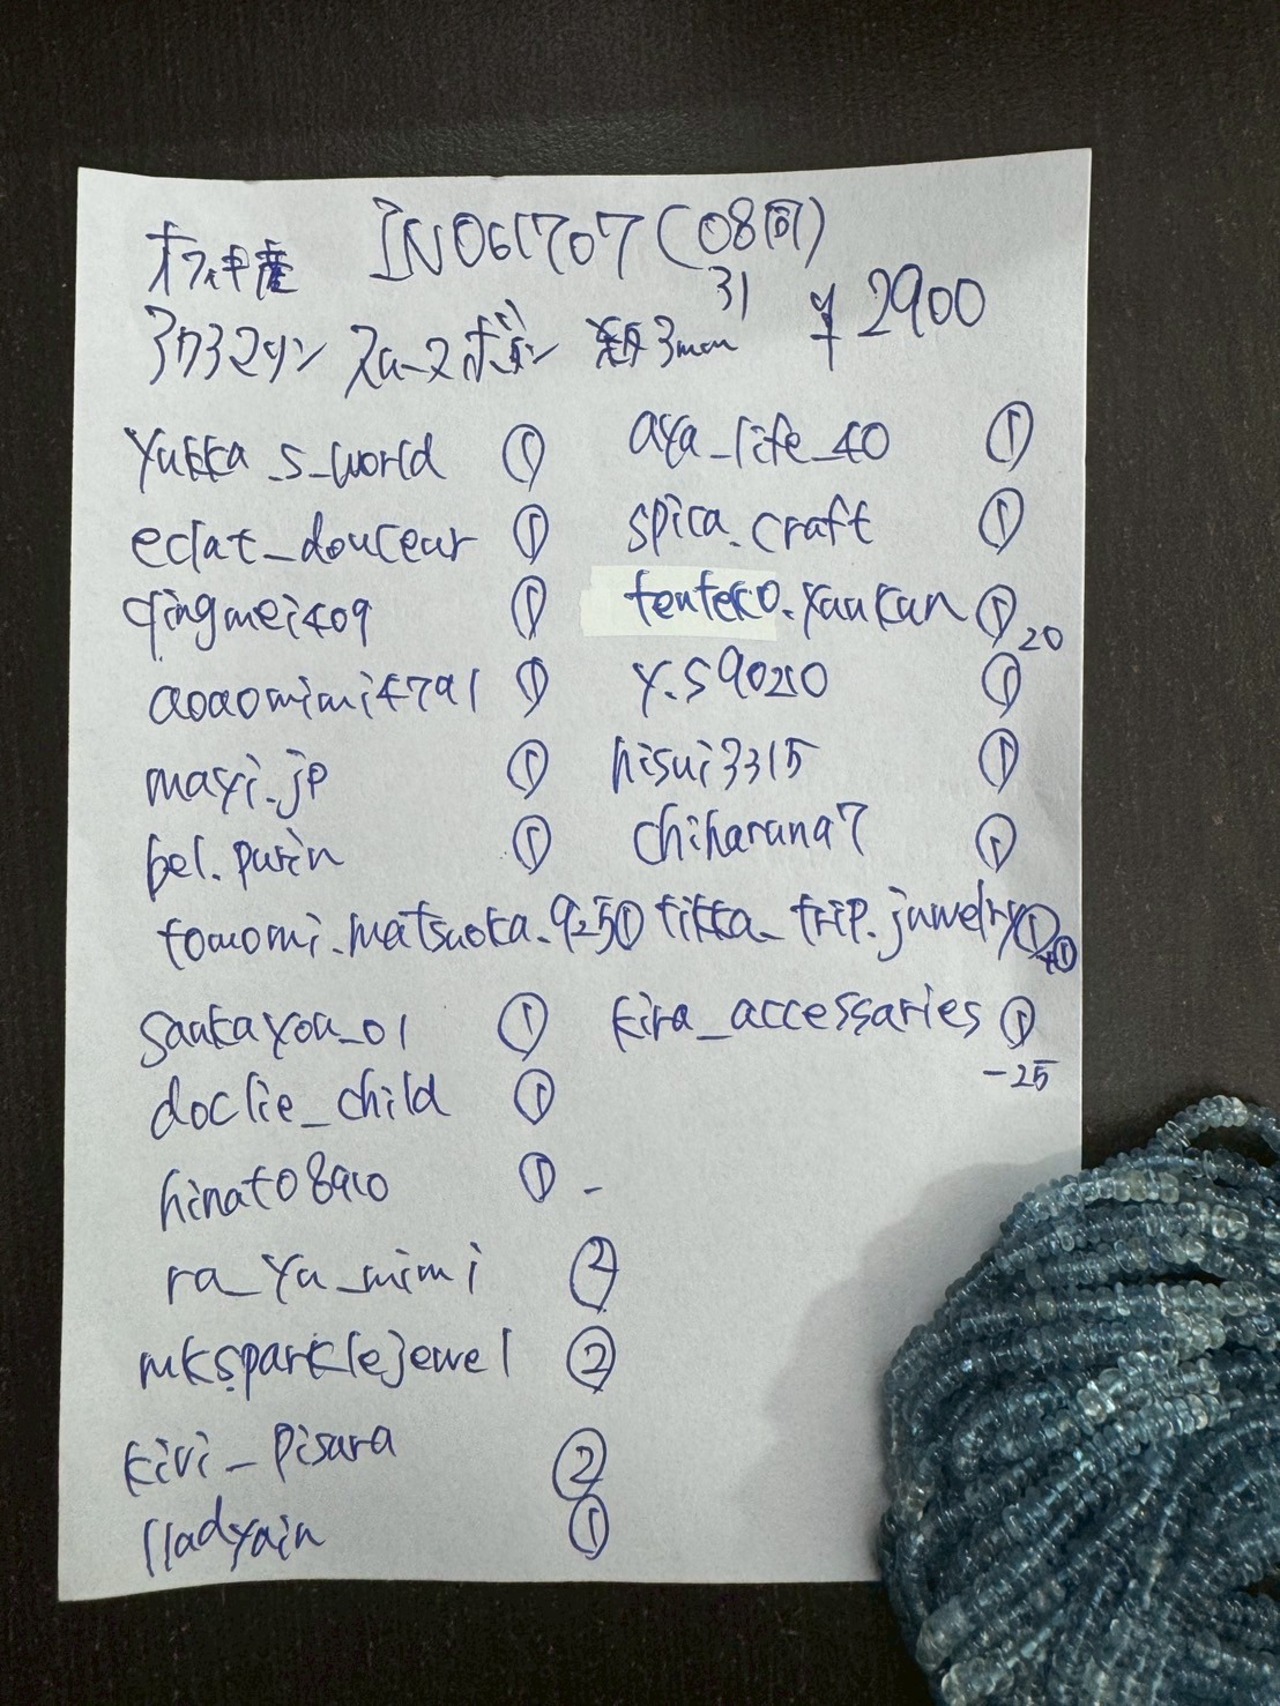 IN061707(08向)
31
¥2900
アクアマリン スムースボタン 約3mm
yukka_s_world ①
eclat_douceur ①
qingmei409 ①
aoaomimi4791 ①
mayi.jp ①
bel.purin ①
tomomi.matsuoka.925 ①
sankayou_01 ①
doclie_child ①
hinato8910 ① -
ra_ya_mimi ②
mksparklejewel ②
kivi_pisara ②
lladyain ①
aya_life_40 ①
spica.craft ①
tenteko.yaukan ① 20
y.s90210 ①
hisui3315 ①
chiharuna7 ①
tikka_trip.juwelry ① +①
kira_accessaries ①
-25